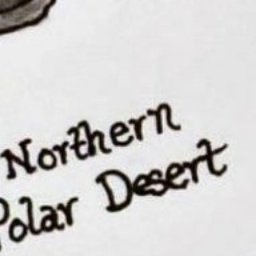 Northern
Polar Desert